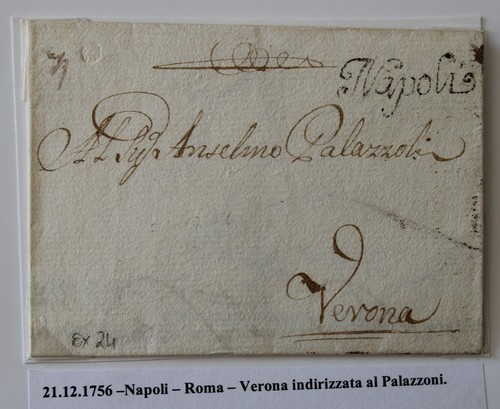 Napoli
Al Sigr Anselmo Palazzoli
Verona
Ex 24
21.12.1756 –Napoli – Roma – Verona indirizzata al Palazzoni.